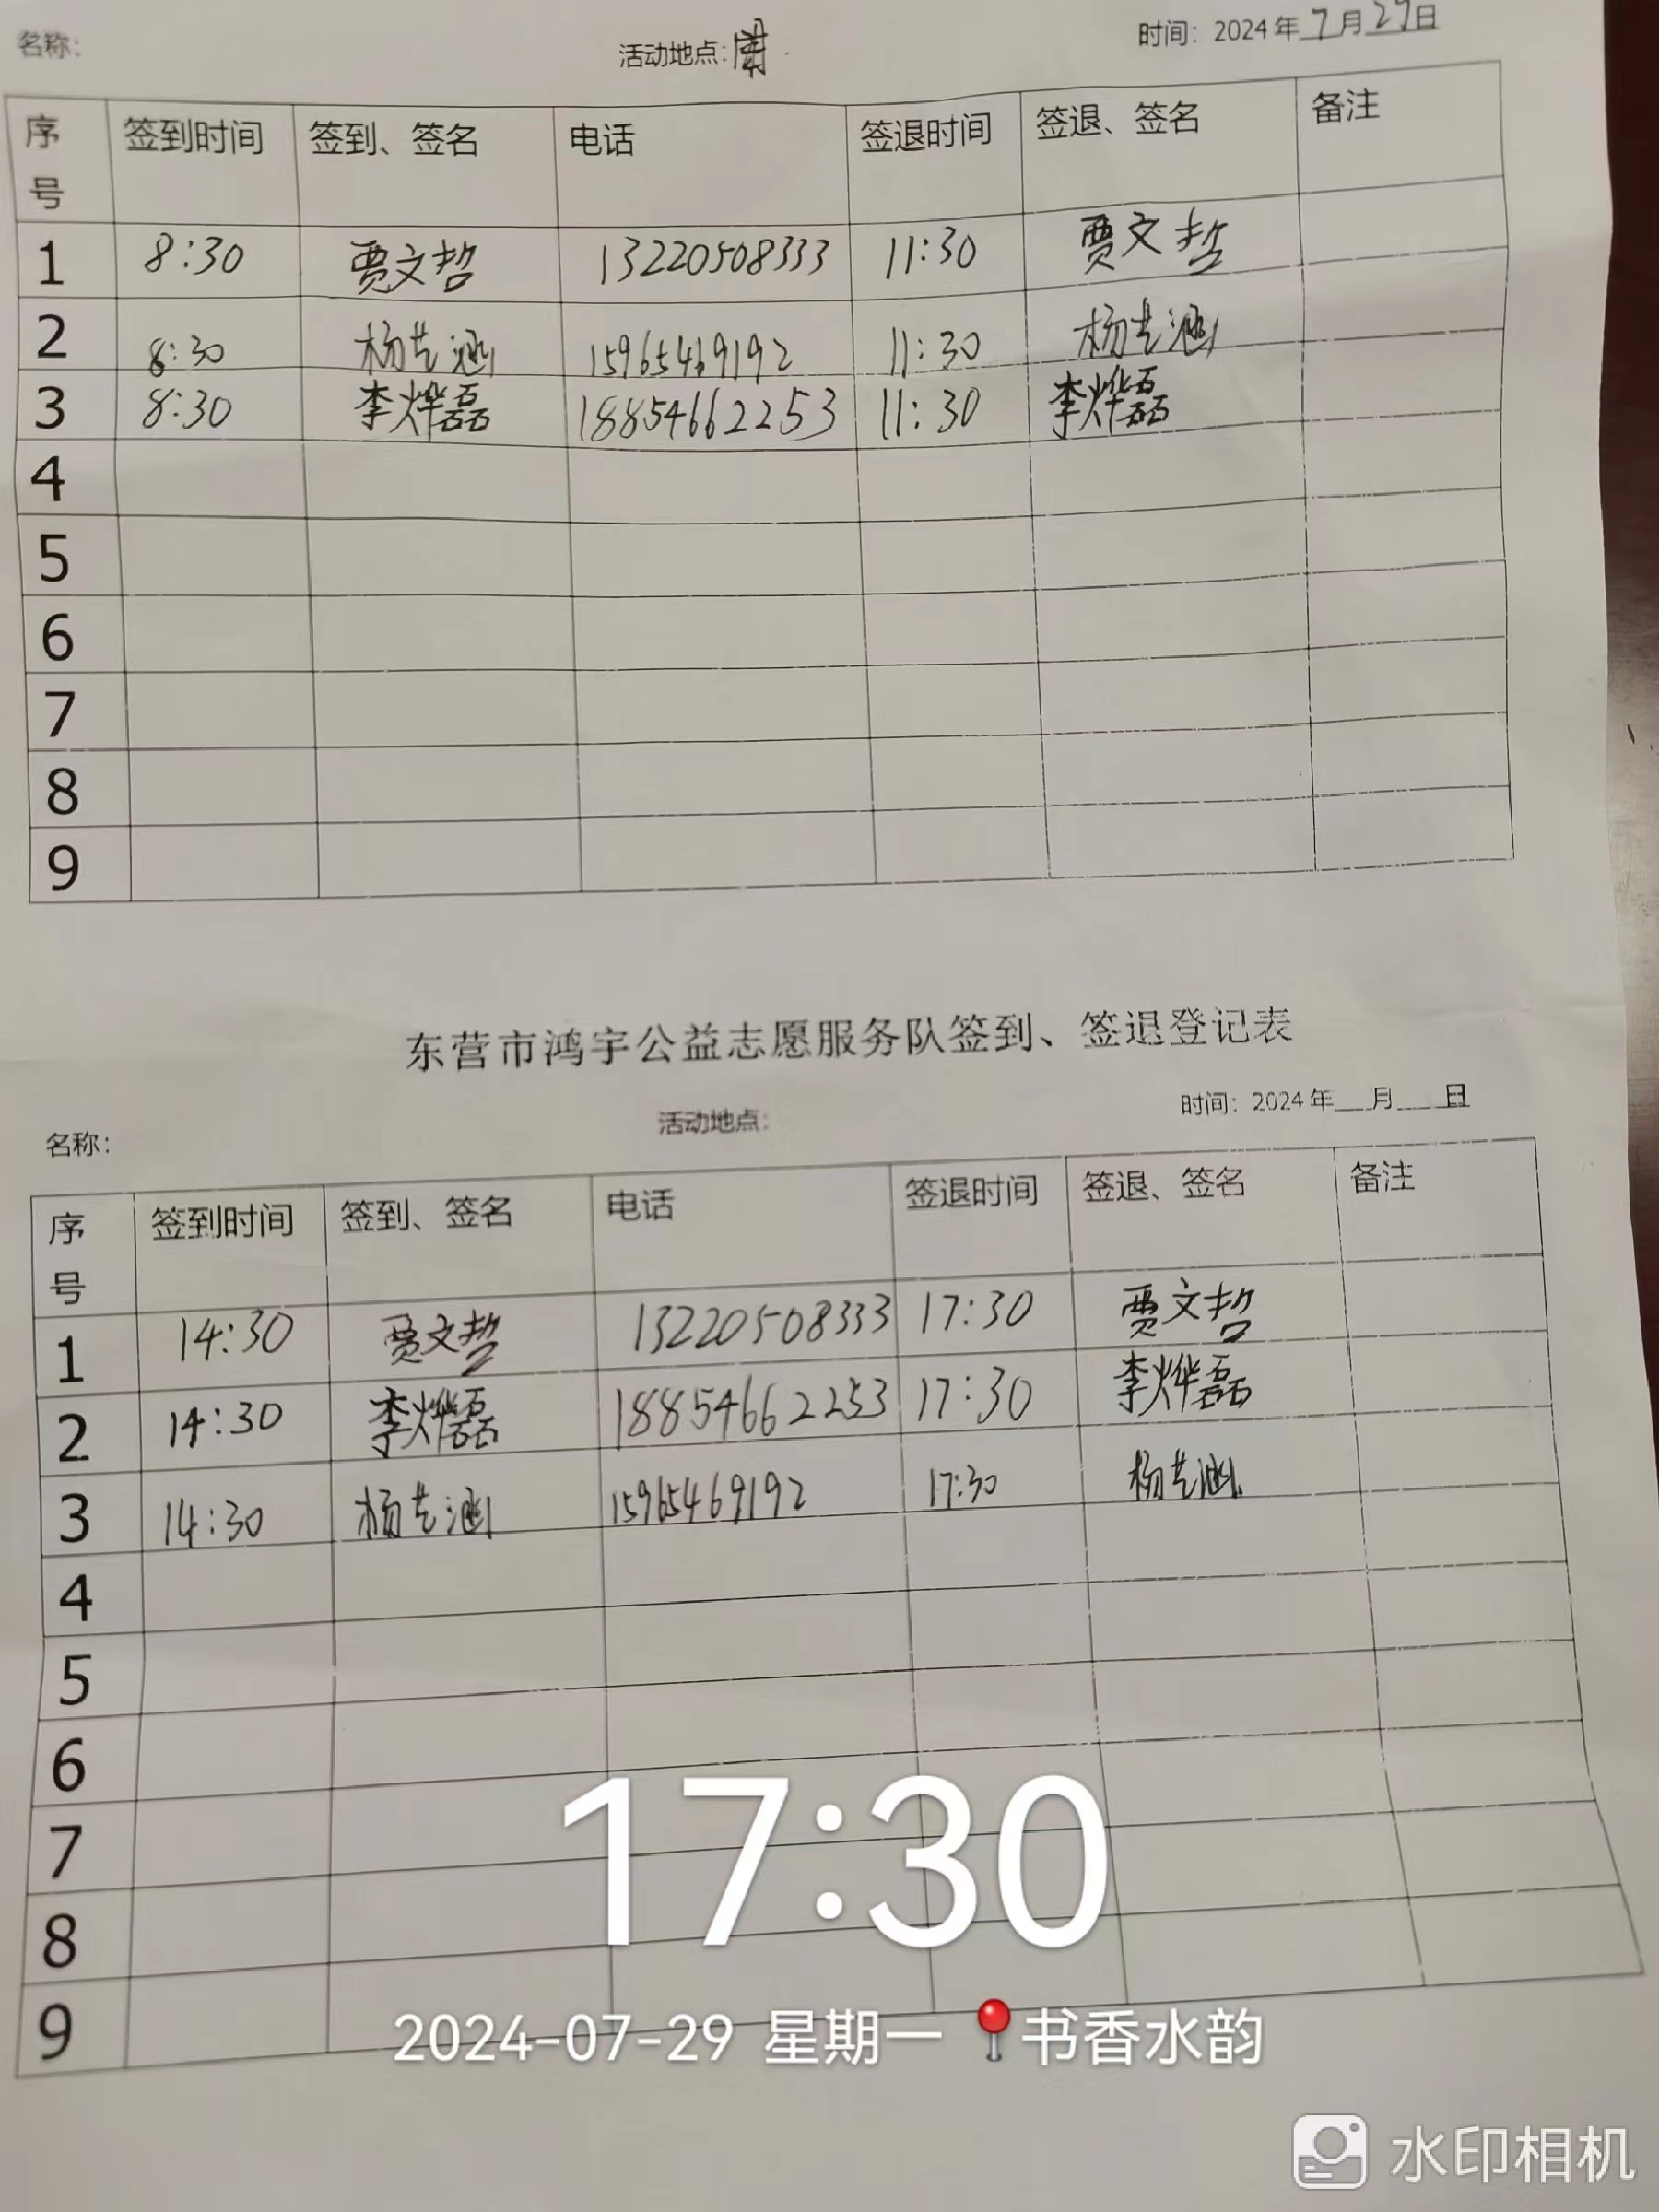 名称： 活动地点： 时间：2024年7月29日
序号 签到时间 签到、签名 电话 签退时间 签退、签名 备注
1 8:30 贾文哲 13220508333 11:30 贾文哲
2 8:30 杨艺涵 15965469192 11:30 杨艺涵
3 8:30 李烨磊 18854662253 11:30 李烨磊
4
5
6
7
8
9
东营市鸿宇公益志愿服务队签到、签退登记表
名称： 活动地点： 时间：2024年__月__日
序号 签到时间 签到、签名 电话 签退时间 签退、签名 备注
1 14:30 贾文哲 13220508333 17:30 贾文哲
2 14:30 李烨磊 18854662253 17:30 李烨磊
3 14:30 杨艺涵 15965469192 17:30 杨艺涵
4
5
6
7
8
9
17:30
2024-07-29 星期一 书香水韵
水印相机